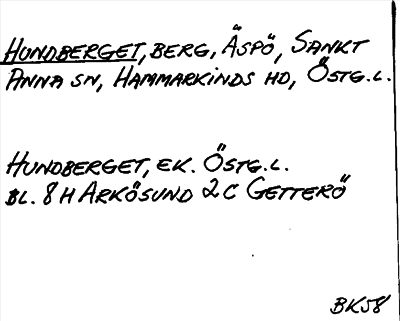 HUNDBERGET, BERG, ÄSPÖ, SANKT
ANNA SN, HAMMARKINDS HD, ÖSTG.L.
HUNDBERGET, EK. ÖSTG.L.
BL. 8 H ARKÖSUND 2C GETTERÖ
BK58